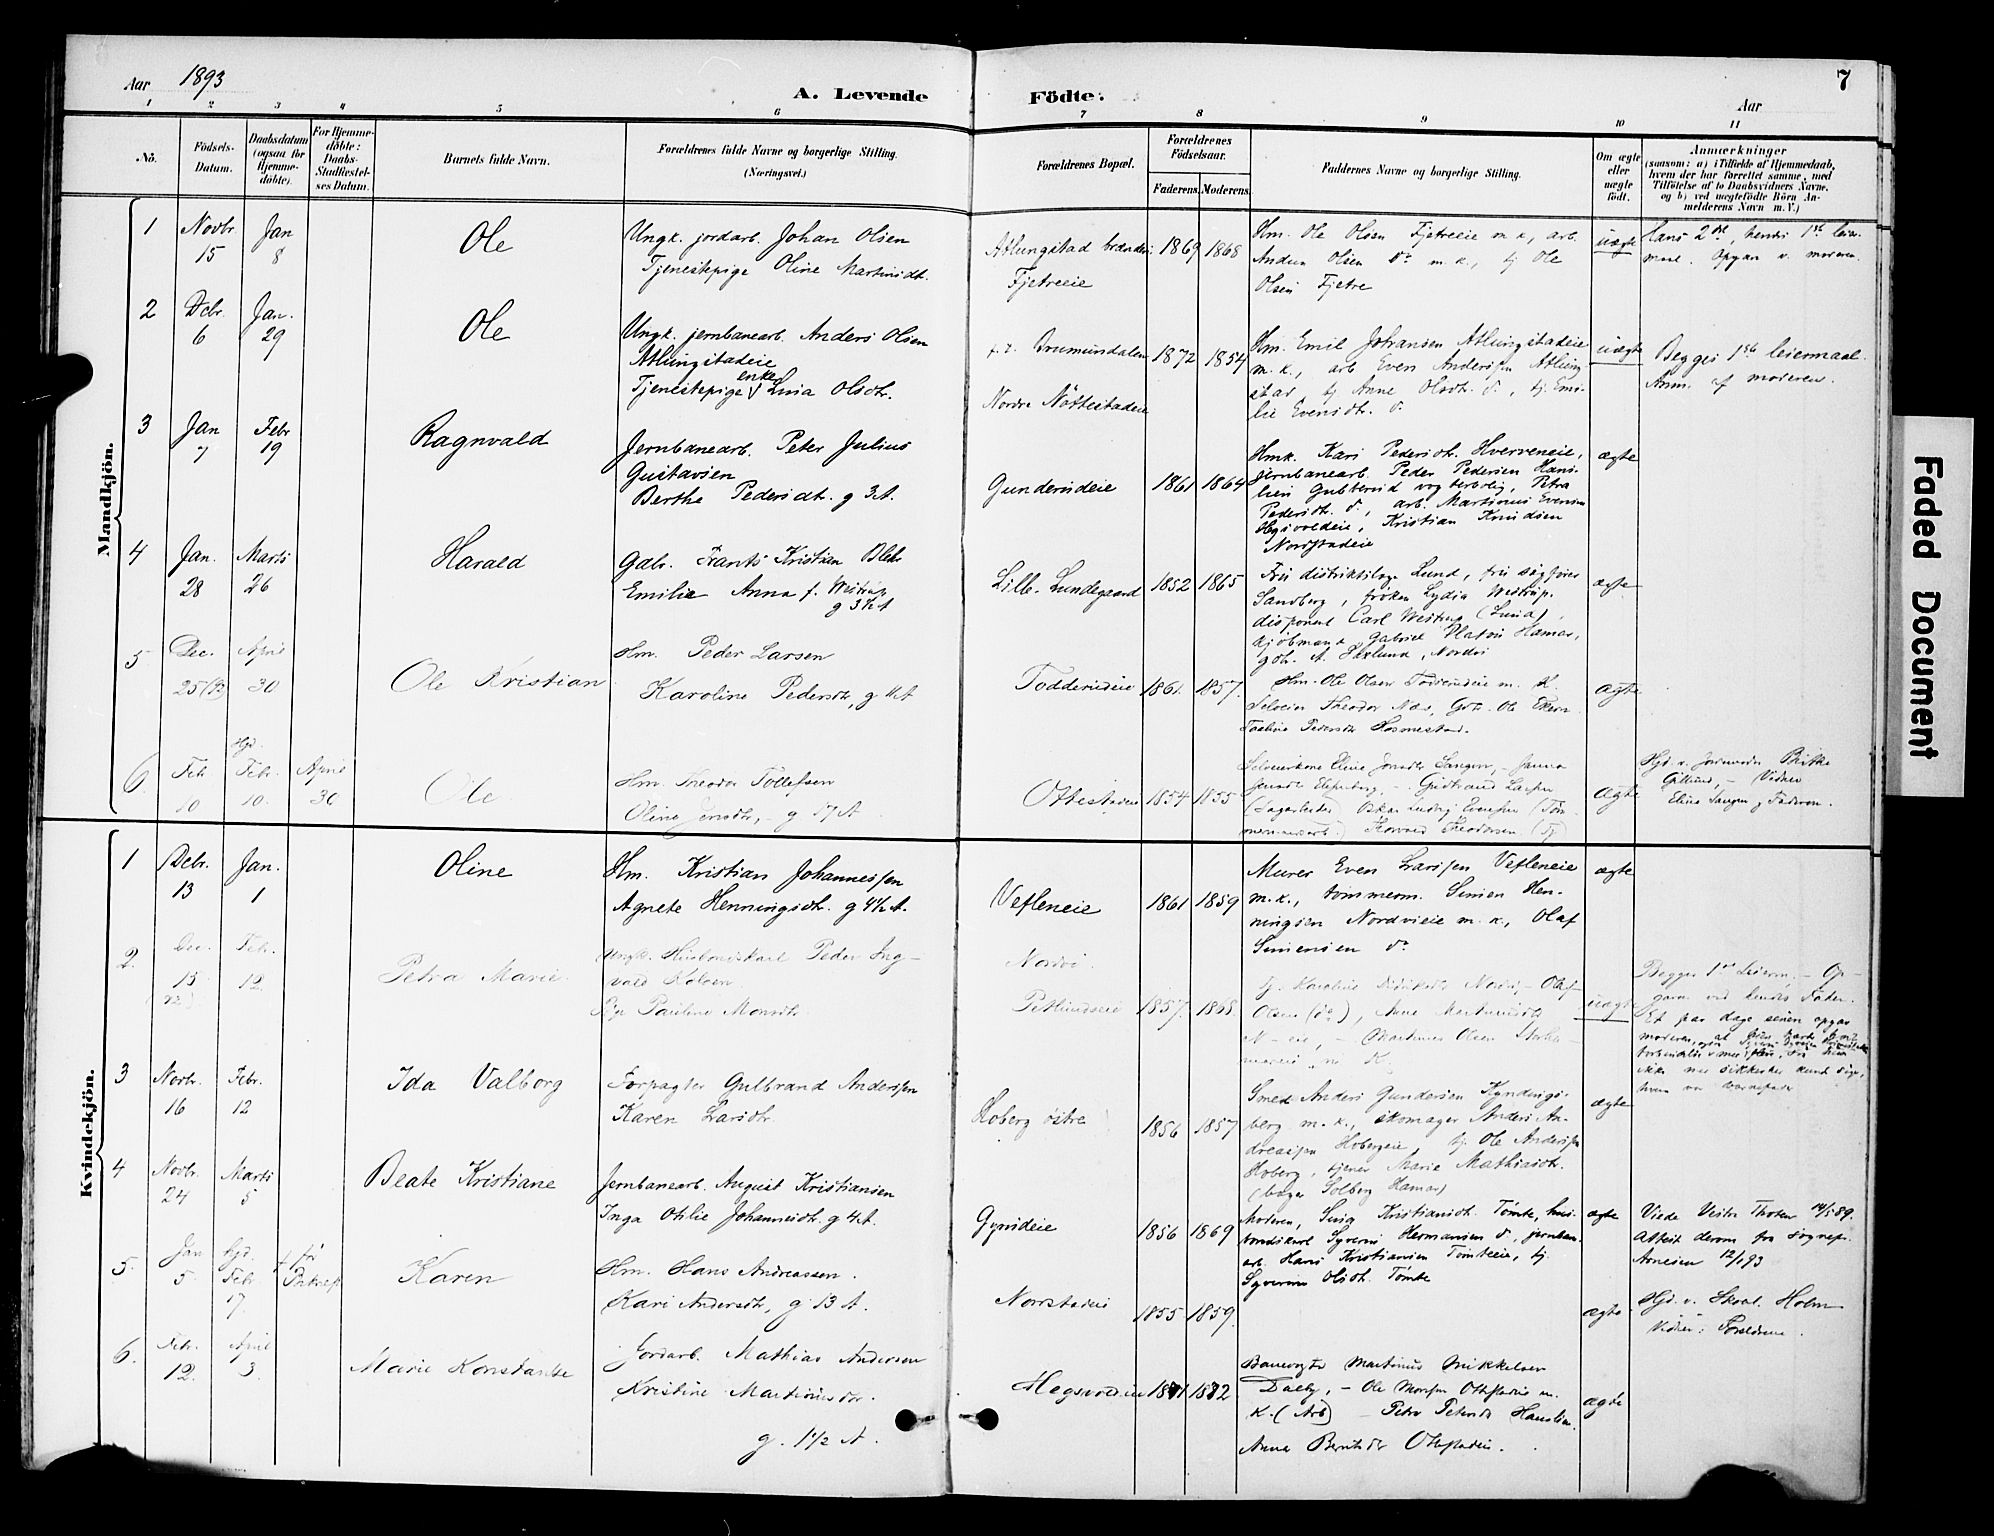 Aar 1893
A. Levende Födte.
7
Aar
1 2 3 4 5 6 7 8 9 10 11
No.
Födsels-Datum.
Daabsdatum (ogsaa for Hjemme-döbte).
For Hjemme-döbte: Daabs-Stadfæstel-ses Datum.
Barnets fulde Navn.
Forældrenes fulde Navne og borgerlige Stilling.
(Næringsvei.)
Forældrenes Bopæl.
Forældrenes Födselsaar.
Faderens. Moderens.
Faddernes Navne og borgerlige Stilling.
Om ægte eller uægte födt.
Anmærkninger
(saasom: a) i Tilfælde af Hjemmedaab,
hvem der har forrettet samme, med
Tilföielse af to Daabsvidners Navne,
og b) ved uægtefödte Börn An-
melderens Navn m.V.)
Mandkjön.
1 Novbr. 15 Jan 8 Ole
Ungk. jordarb. Johan Olsen
Tjenestepige Oline Martinsdt.
Atlungstad brænderi
Fjetreeie
1869 1868
Hm. Ole Olsen Fjetreeie m. k., arb.
Anders Olsen do m. k., tj Ole
Olsen Fjetre
uægte
Hans 2det, hendes 1ste leier-
maal. Opgav v. moderen.
2 Dcbr. 6 Jan. 29 Ole
Ungk. jernbanearb. Anders Olsen
Atlungstadeie
Tjenestepige enke Lina Olsdtr.
f. t. Brumundalen
Nordre Nöttestadeie
1872 1854
Hm. Emil Johansen Atlungstadeie
m. k., arb Even Andersen Atlung-
stad, tj Anne Olsdt. d., tj. Emi-
lie Evensdt. d.
uægte
Begges 1ste leiermaal.
Anm. af moderen.
3 Jan 7 Febr 19 Ragnvald
Jernbanearb. Peter Julius
Gustavsen
Berthe Pedersdt. g 3 A.
Gundersdeie
1861 1864
Hmk. Kari Pedersdt. Hverveneie,
jernbanearb. Peder Pedersen Hans-
Pedersdt. d., arb. Martinius Evensen
Hegsvoldeie, Kristian Knudsen
Nordstadeie
ægte
4 Jan. 28 Marts 26 Harald
Gdbr. Frants Kristian
Emilie Anna f. Westrup
g 3½ A
Lille-Lundegaard
1852 1865
Fru distriktslæge Lund, fru sagförer
Sandberg, fröken Lydia Westrup,
disponent Carl Westrup (Lund),
kjöbmand Gabriel Platou Hamar,
gdb. A. Herlund, Nordvi
ægte
5 Dec. 25 (92) April 30 Ole Kristian
Hm. Peder Larsen
Karoline Pedersdtr, g 11 A
Todderudeie
1861. 1857.
Hm. Ole Olsen Todderudeie m. K.
Selveier Theodor Næs, Gbr. Ole Ekern
Pedersdtr Hosmestad.
ægte
6 Febr. 10 Hjd. Febr. 10. April 30 Ole
Hm. Theodor Tollefsen
Oline Jensdtr, - g 17 A.
Ottestadeie
1854 1855
Gudbrand Larsen
(Sagarbeider) Oskar Ludvig Evensen (Töm-
mermandsarb.) Howard Theodorsen (Tj)
ægte
Hjd. v. Jordmoder Britha
Gillund, - Vidner
Eline Sangen og Faderen.
Kvindekjön.
1 Dcbr. 13 Jan. 1 Oline
Hm. Kristian Johannessen
Agnete Henningsdt. g 4½ A.
Vefleneie
1861 1859
Murer Even Larssen Vefleneie
m. k., tömmerm. Simen Hen-
ningsen Nordvieie m. k., Olaf
Simensen do
ægte
2. Dec. 15 (92). Febr. 12. Petra Marie
Ungk. Husbondskarl Peder Ing-
vald Kolsen.
Pige Pauline Monsdtr.
Nordvi.
Petlundseie
1857. 1868.
Olsen (do), Anne Martinusdtr
N-eie, - Martinus Olsen
uægte
Begges 1ste Leierm. - Op-
gave ved hendes Fader.
Et par dage senere opgav
ikke med sikkerhed kunde sige,
hvem var barnefader
3 Novbr. 16 Febr. 12 Ida Valborg
Forpagter Gulbrand Anderssen
Karen Larsdtr.
Hoberg östre
1856 1857
Smed Anders Gundersen Kyndings-
berg m. k., skomager Anders An-
dreassen Hobergeie, tj. Ole Anderssen
Hoberg, tjener Marie Mathiasdt.
(bager Solberg Hamar)
ægte
4 Novbr. 24 Marts 5 Beate Kristiane
Jernbanearb. August Kristiansen
Inga Otilie Johannesdt. g 4 A.
Gyrudeie
1856 1869
Moderen, Lina Kristiansdt. Tömte, hus-
bondskarl Syver Hermansen d., jernban-
arb. Hans Kristiansen Tömteeie, tj.
Syverine Olsdt. Tömte
ægte
Viede Vestre Thoten 14/5 89.
Attest derom fra sognepr.
Arnesen 12/1 93
5. Jan 5 Hjd. Febr. 17. † för Karen
Hm. Hans Andreassen.
Kari Andersdtr, g 13 A.
Norstadeie
1855 1859.
ægte
Hjd. v. Skoel. Holm
Vidner: Forældrene.
6. Febr. 12. April 3. Marie Konstanse
Jordarb. Mathias Andersen
Kristine Martinusdtr.
g. 1½ A.
Hegsvoldeie
1871 1872
Banevogter Martinus Mikkelsen
Dalby, - Ole Monsen Ottestadeie m.
K. (Arb) - Petra Petersdtr Hanslien
Anna Berntsdtr Ottestadeie.
ægte
Faded Document